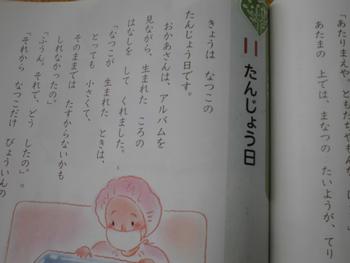 「あたりまえや、ともだちやもんな
あたまの　上では、まなつの　たいようが、てり
11 たんじょう日
きょうは　なつこの
たんじょう日です。
おかあさんは、アルバムを
見ながら、生まれた　ころの
はなしを　して　くれました。
「なつこが　生まれた　ときは、
とっても　小さくて、
そのままでは　たすからないかも
しれなかったの。」
「ふうん。それで、どう　したの。」
「それから　なつこだけ　びょういんの